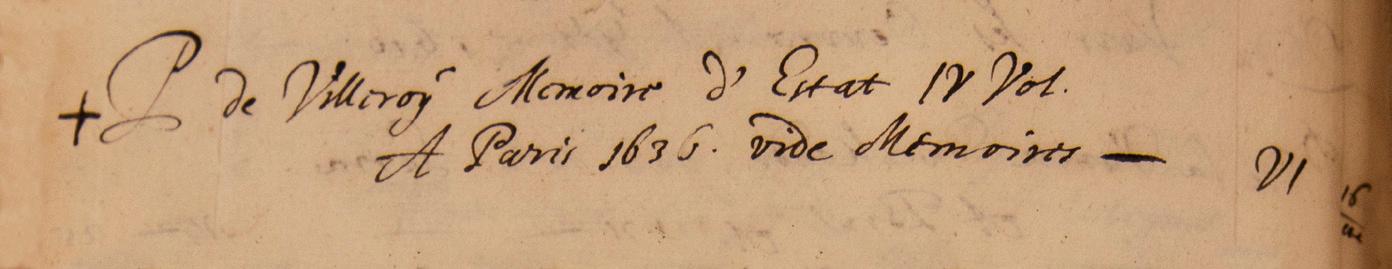 + P de Villeroÿ Memoire d' Estat IV Vol.
A Paris 1636. vide Memoires — VI
16